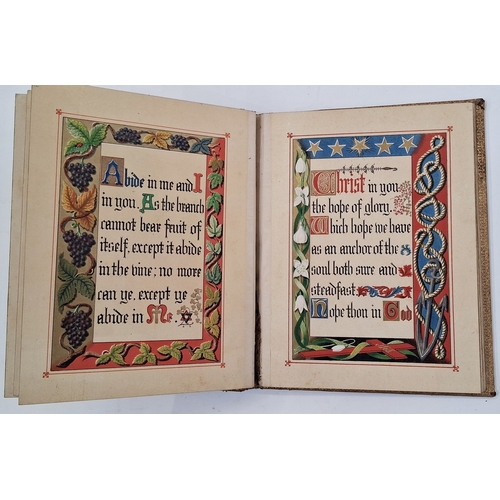 Abide in me and I
in you. As the branch
cannot bear fruit of
itself, except it abide
in the vine; no more
can ye, except ye
abide in Me
Christ in you
the hope of glory.
Which hope we have
as an anchor of the
soul both sure and
steadfast.
Hope thou in God